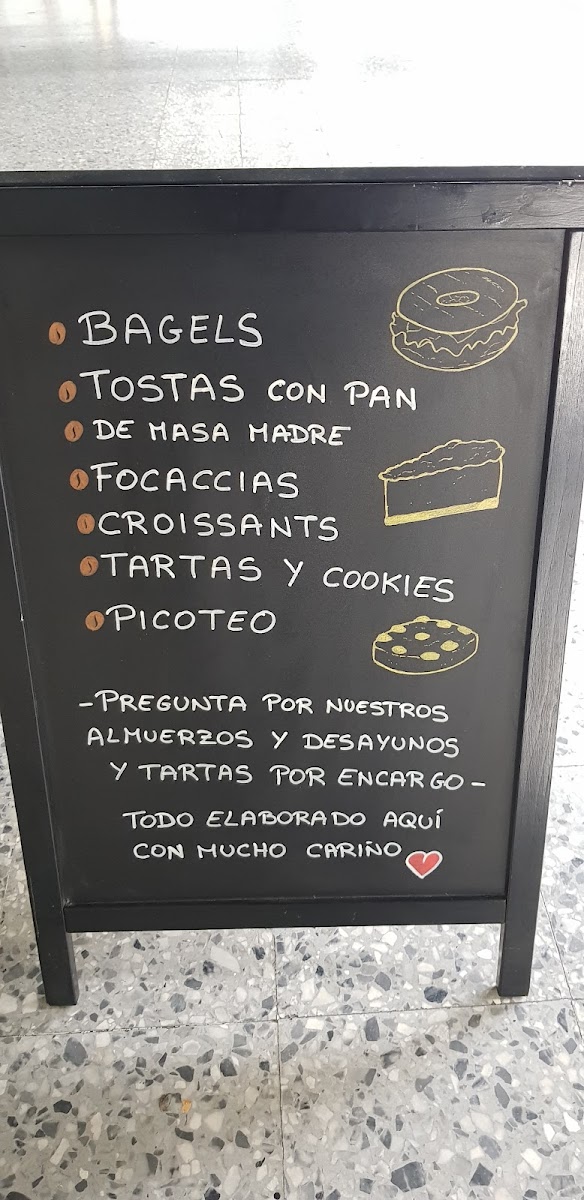 BAGELS
TOSTAS CON PAN
DE MASA MADRE
FOCACCIAS
CROISSANTS
TARTAS Y COOKIES
PICOTEO
-PREGUNTA POR NUESTROS
ALMUERZOS Y DESAYUNOS
Y TARTAS POR ENCARGO-
TODO ELABORADO AQUÍ
CON MUCHO CARIÑO